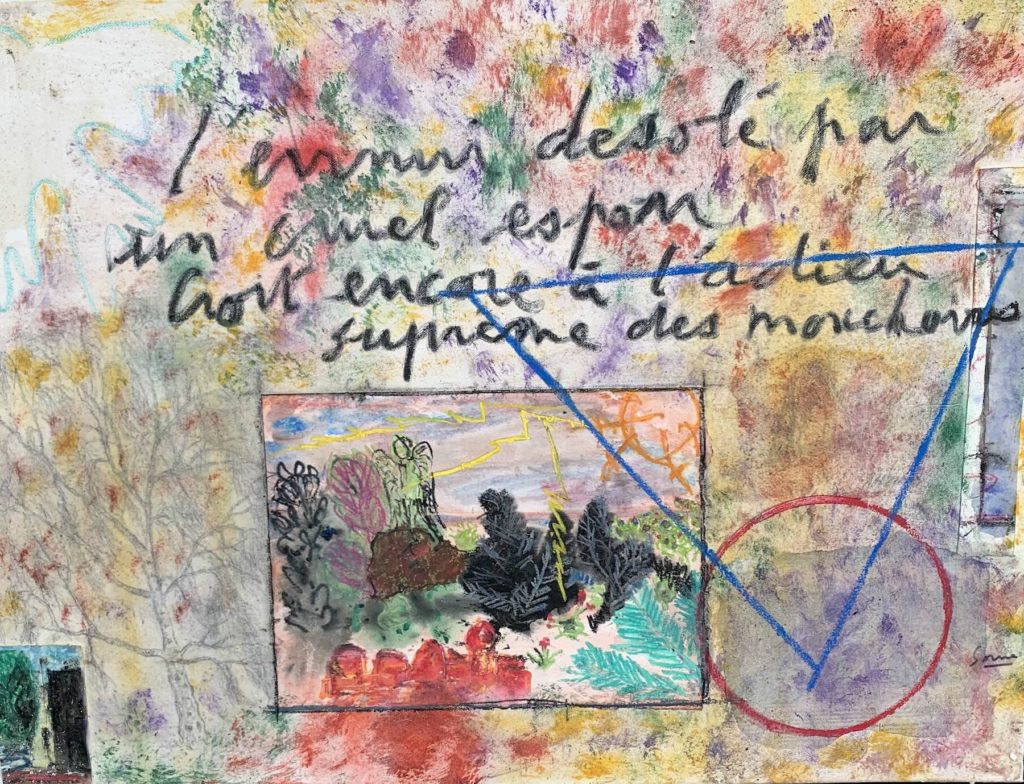 l ennui desolé par
un cruel espoir
Croit encore à l'adieu
supreme des mouchoirs